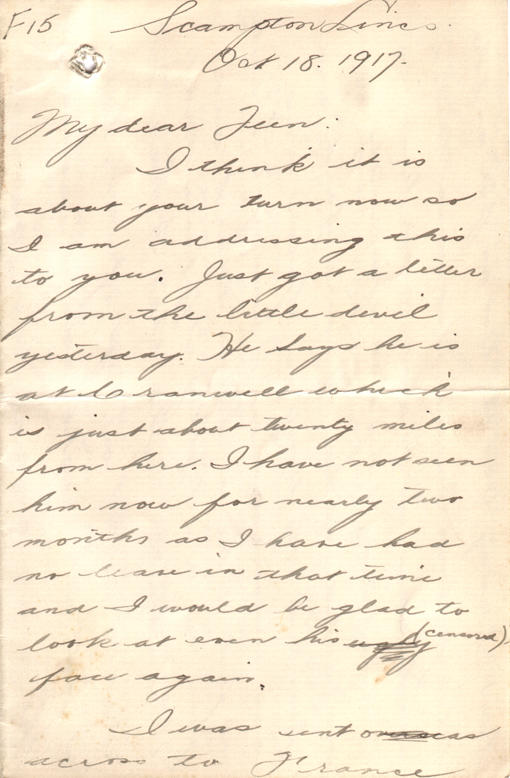 F15 Scampton Lincs.
Oct 18. 1917.
My dear Teen:
I think it is
about your turn now so
I am addressing this
to you. Just got a letter
from the little devil
yesterday. He says he is
at Cranwell which
is just about twenty miles
from here. I have not seen
him now for nearly two
months as I have had
no leave in that time
and I would be glad to
look at even his ugly (censored)
face again.
I was sent overseas
across to France